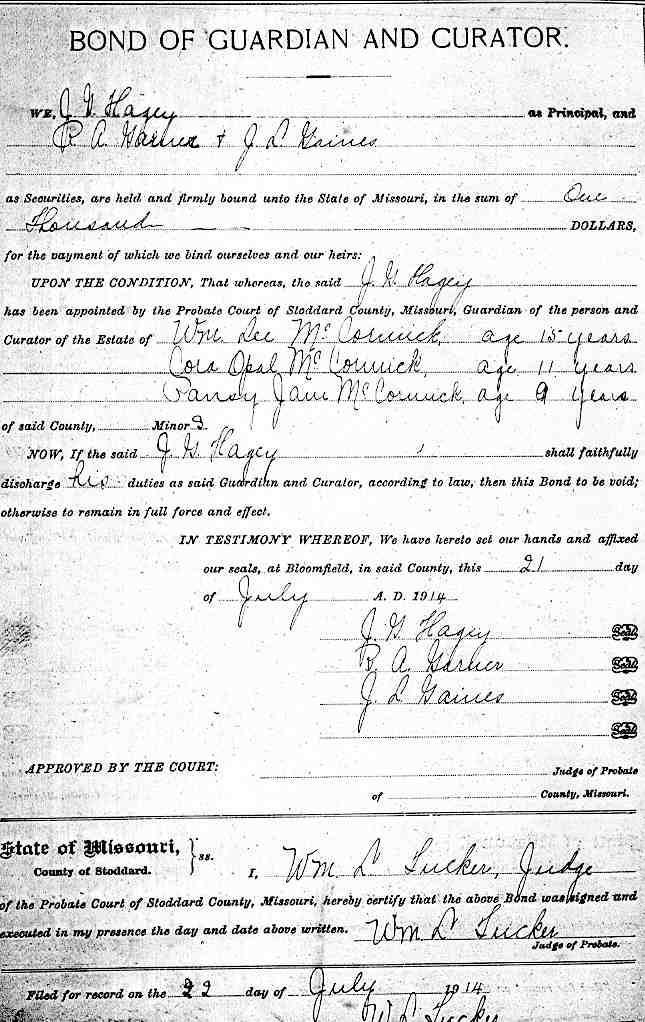 BOND OF GUARDIAN AND CURATOR.
WE, J. G. Hagey as Principal, and
R A Garner + J L Gaines
as Securities, are held and firmly bound unto the State of Missouri, in the sum of One
Thousand DOLLARS,
for the payment of which we bind ourselves and our heirs:
UPON THE CONDITION, That whereas, the said J. G. Hagey
has been appointed by the Probate Court of Stoddard County, Missouri, Guardian of the person and
Curator of the Estate of Wm. Lee McCormick, age 15 years
Cora Opal McCormick, age 11 years
Pansy Jane McCormick, age 9 years
of said County, Minors.
NOW, If the said J. G. Hagey shall faithfully
discharge his duties as said Guardian and Curator, according to law, then this Bond to be void;
otherwise to remain in full force and effect.
IN TESTIMONY WHEREOF, We have hereto set our hands and affixed
our seals, at Bloomfield, in said County, this 21 day
of July A. D. 1914
J. G. Hagey Seal
R A Garner Seal
J L Gaines Seal
Seal
APPROVED BY THE COURT:
Judge of Probate
of County, Missouri.
State of Missouri, } ss.
County of Stoddard.
I, Wm L Tucker, Judge
of the Probate Court of Stoddard County, Missouri, hereby certify that the above Bond was signed and
executed in my presence the day and date above written. Wm L Tucker
Judge of Probate.
Filed for record on the 22 day of July 1914
W L Tucker